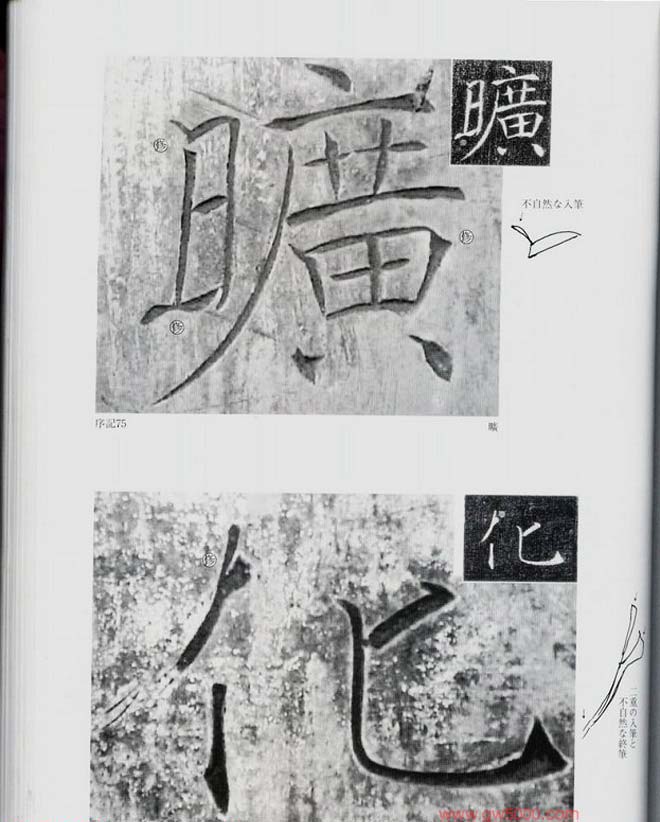 曠
曠
不自然な入筆
修
修
修
序記75
曠
化
化
修
二重の入筆と
不自然な終筆
www.gw5000.com